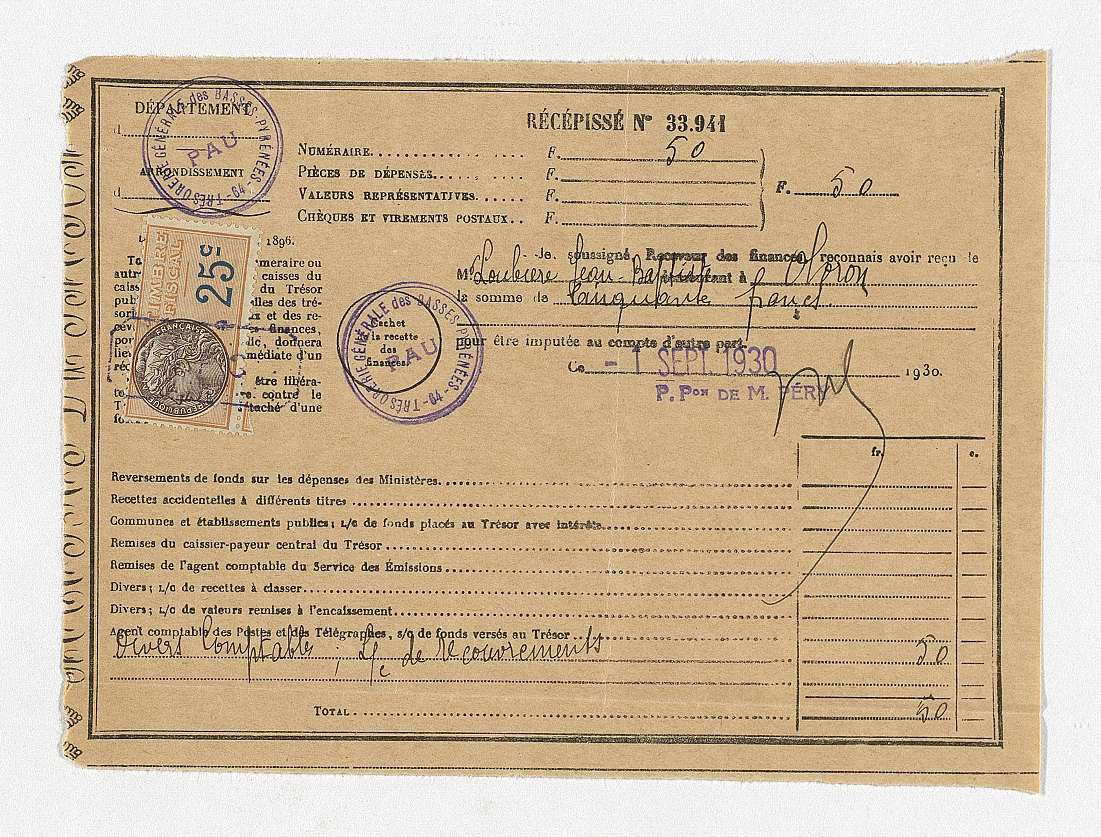 DÉPARTEMENT
d
ARRONDISSEMENT
d
TRÉSORERIE GÉNÉRALE des BASSES-PYRÉNÉES - 64 -
PAU
RÉCÉPISSÉ N° 33.941
NUMÉRAIRE F. 50
PIÈCES DE DÉPENSES F.
VALEURS REPRÉSENTATIVES F.
CHÈQUES ET VIREMENTS POSTAUX F.
F. 50
1896.
TIMBRE FISCAL
25c
FRANÇAISE
REPUBLIQUE
méraire ou
autr caisses du
cais du Trésor
pub lles des tré-
sori x et des re-
cev finances,
por donnera
lieu médiate d'un
réc
être libéra-
contre le
taché d'une
Je soussigné, Receveur des finances, reconnais avoir reçu de
M. Loubière Jean-Baptiste à Oloron
la somme de Cinquante francs
pour être imputée au compte d'autre part.
TRÉSORERIE GÉNÉRALE des BASSES-PYRÉNÉES - 64 -
PAU
Cachet
de la recette
des
finances.
Ce - 1 SEPT. 1930 1930.
P. Pon DE M. PÉRY
fr. c.
Reversements de fonds sur les dépenses des Ministères
Recettes accidentelles à différents titres
Communes et établissements publics; L/C de fonds placés au Trésor avec intérêts
Remises du caissier-payeur central du Trésor
Remises de l'agent comptable du Service des Émissions
Divers; L/C de recettes à classer
Divers; L/C de valeurs remises à l'encaissement
Agent comptable des Postes et des Télégraphes, s/c de fonds versés au Trésor
Divers Comptables ; L/c de Recouvrements 50
TOTAL 50